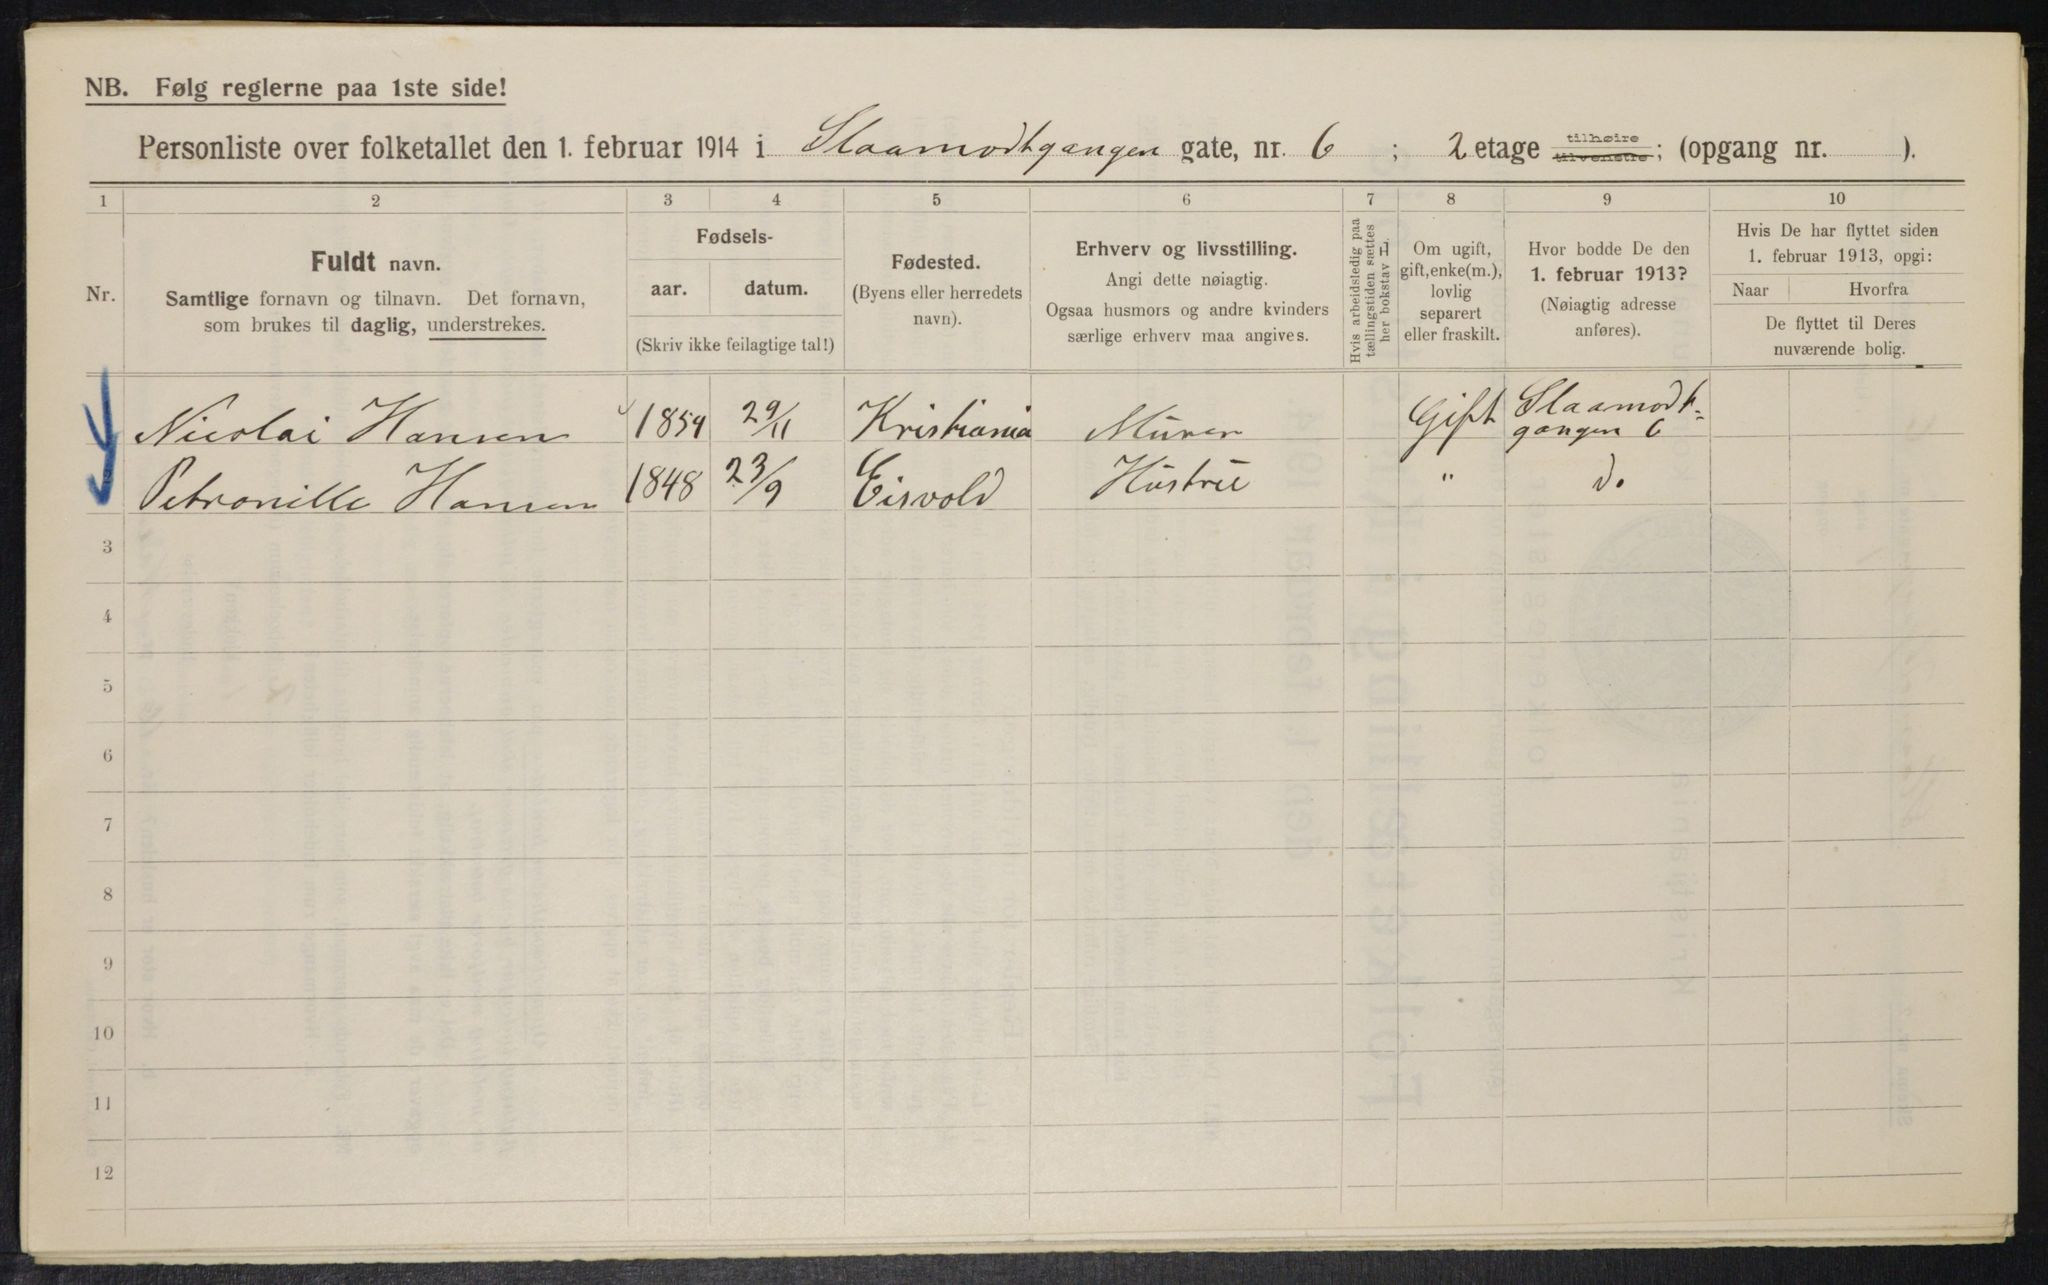 NB. Følg reglerne paa 1ste side!
Personliste over folketallet den 1. februar 1914 i Slaamodtgangen gate, nr. 6 ; 2 etage tilhøire tilvenstre; (opgang nr. ).
1 2 3 4 5 6 7 8 9 10
Nr.
Fuldt navn.
Samtlige fornavn og tilnavn. Det fornavn,
som brukes til daglig, understrekes.
Fødsels-
aar. datum.
(Skriv ikke feilagtige tal!)
Fødested.
(Byens eller herredets
navn).
Erhverv og livsstilling.
Angi dette nøiagtig.
Ogsaa husmors og andre kvinders
særlige erhverv maa angives.
Hvis arbeidsledig paa
tællingstiden sættes
her bokstav H.
Om ugift,
gift, enke(m.),
lovlig
separert
eller fraskilt.
Hvor bodde De den
1. februar 1913?
(Nøiagtig adresse
anføres).
Hvis De har flyttet siden
1. februar 1913, opgi:
Naar Hvorfra
De flyttet til Deres
nuværende bolig.
Nicolai Hansen 1854 29/11 Kristiania Murer Gift Slaamodt-
gangen 6
Petronille Hansen 1848 23/9 Eisvold Hustru " do
3
4
5
6
7
8
9
10
11
12